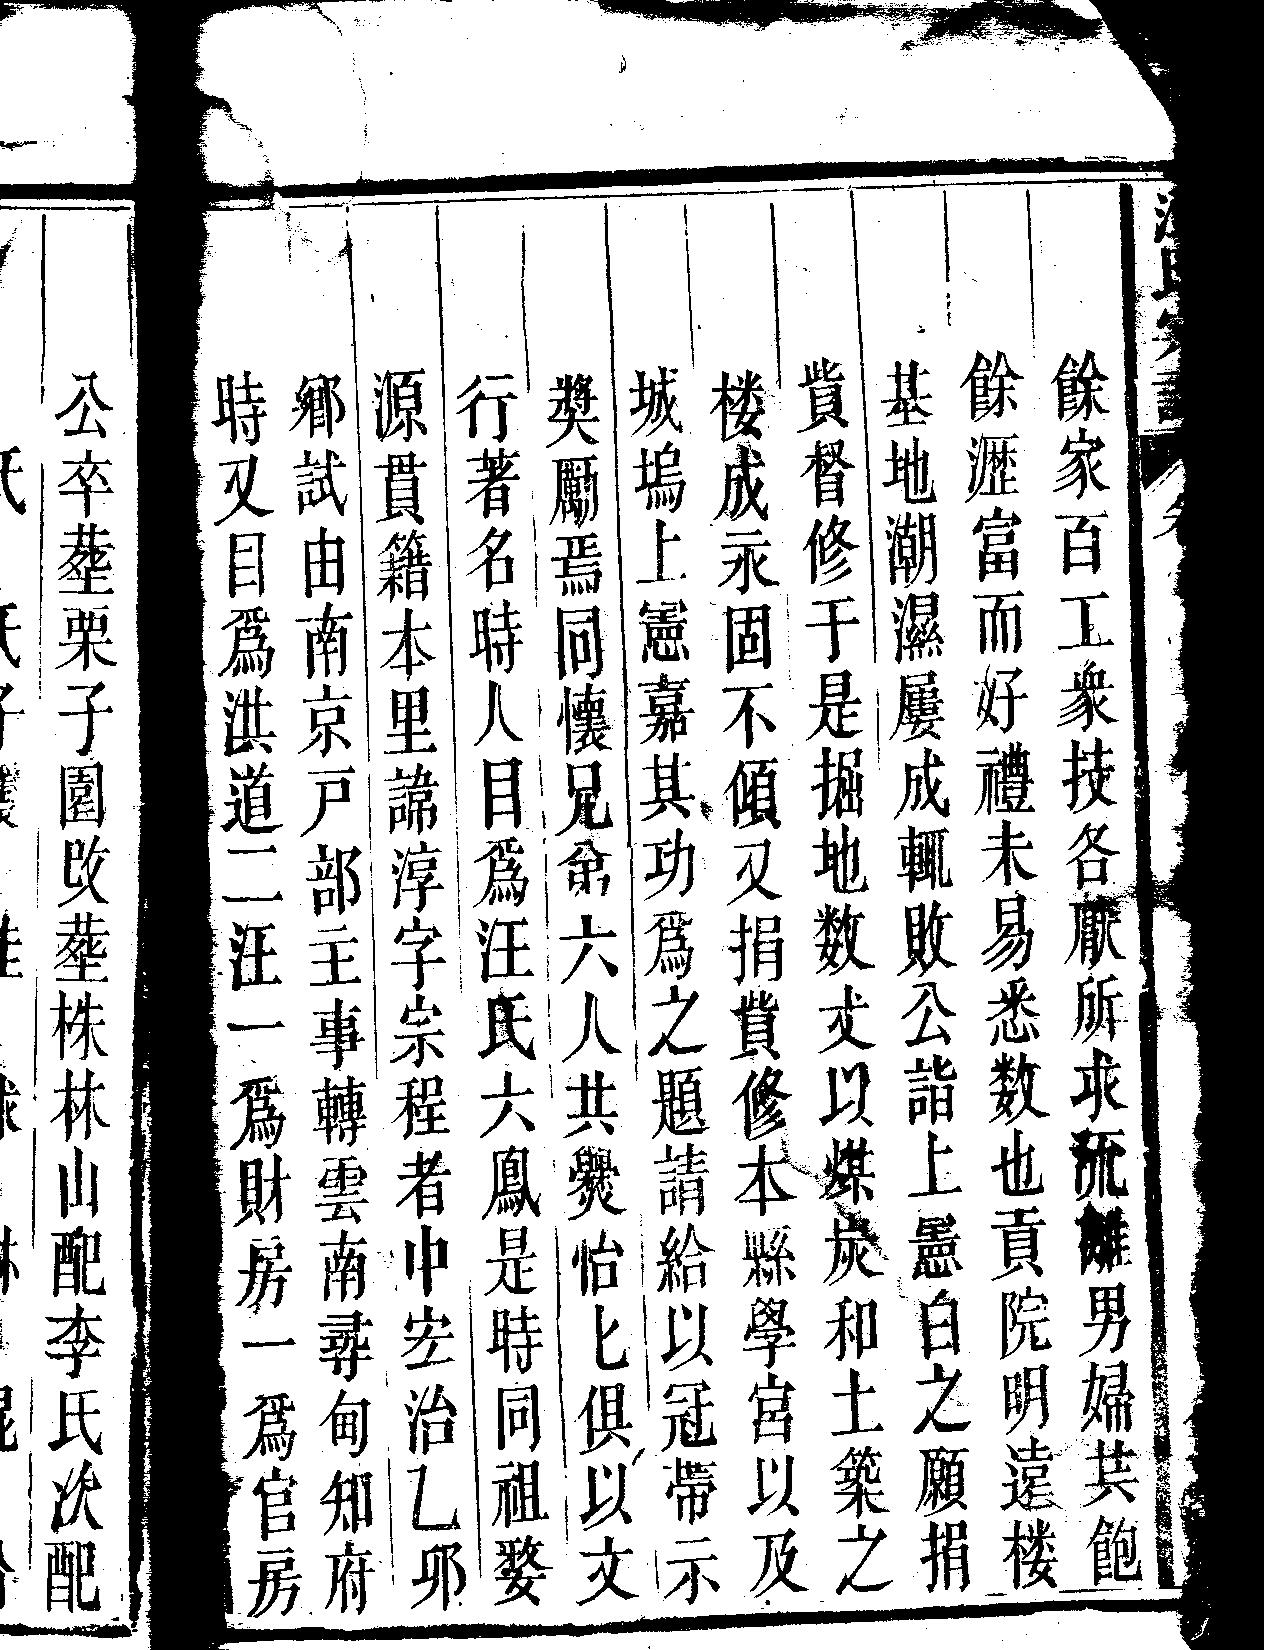 餘家百工衆技各厭所求流離男婦共飽
餘瀝富而好禮未易悉数也貢院明遠楼
基地潮濕屢成輒敗公詣上憲白之願捐
貲督修于是掘地数丈以煤炭和土築之
楼成永固不傾又捐貲修本縣學宮以及
城塢上憲嘉其功爲之題請給以冠帶示
奬勵焉同懷兄弟六人共爨怡怡俱以文
行著名時人目爲汪氏六鳳是時同祖婺
源貫籍本里諱淳字宗程者中宏治乙卯
鄉試由南京戸部主事轉雲南尋甸知府
時又目爲洪道二汪一爲財房一爲官房
公卒塟栗子園改塟株林山配李氏次配